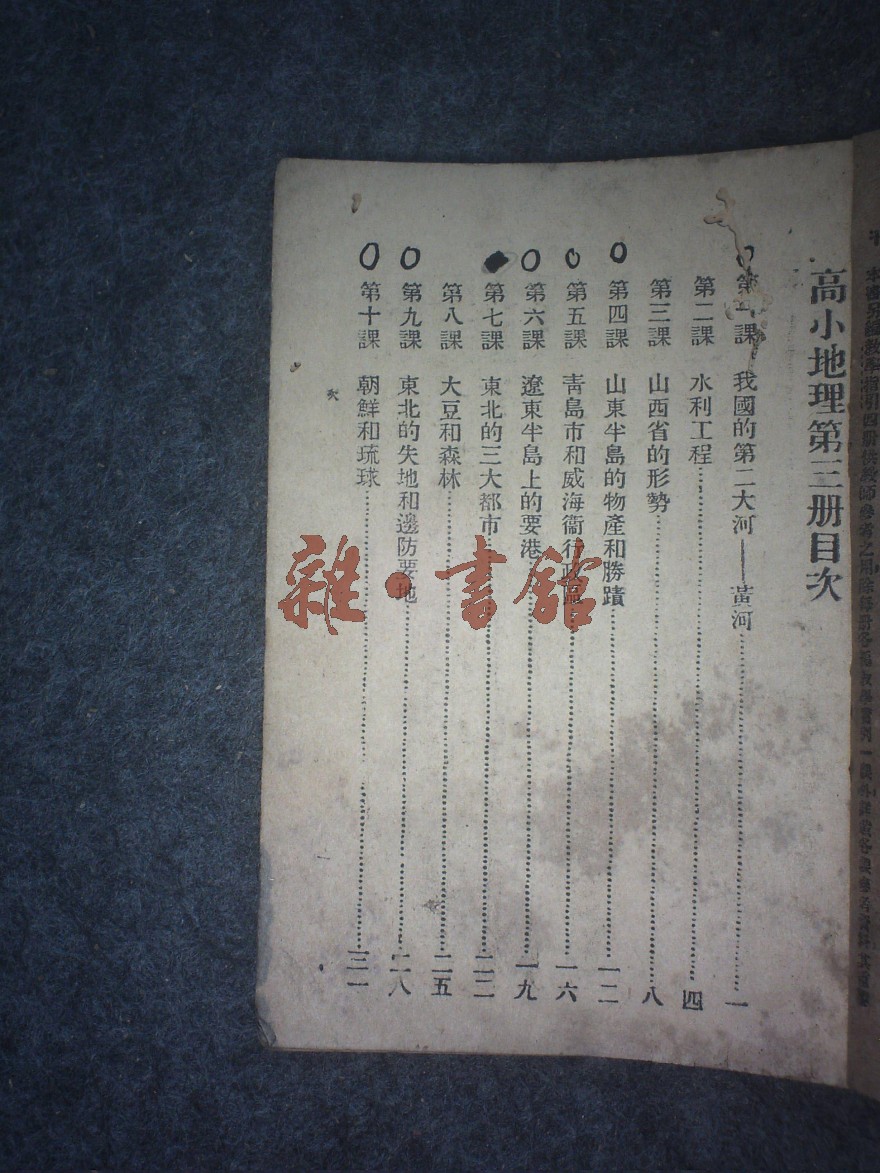 高小地理第三册目次
第一課 我國的第二大河——黃河……一
第二課 水利工程……四
第三課 山西省的形勢……八
第四課 山東半島的物產和勝蹟……一二
第五課 靑島市和威海衞行政區……一六
第六課 遼東半島上的要港……一九
第七課 東北的三大都市……二二
第八課 大豆和森林……二五
第九課 東北的失地和邊防要地……二八
第十課 朝鮮和琉球……三一
次
雜·書館